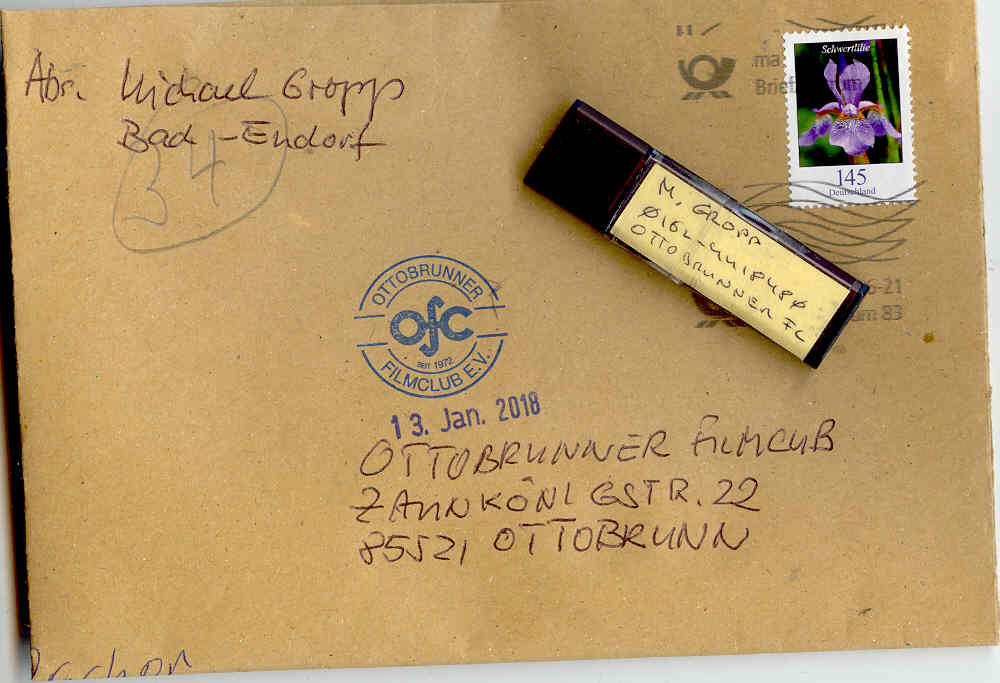 Abs. Michael Gropp
Bad-Endorf
34
Schwertlilie
145
Deutschland
M. GROPP
0162-4418480
OTTOBRUNNER FC
OTTOBRUNNER
ofc
SEIT 1972
FILMCLUB E.V.
13. Jan. 2018
OTTOBRUNNER FILMCLUB
ZAUNKÖNIGSTR. 22
85521 OTTOBRUNN